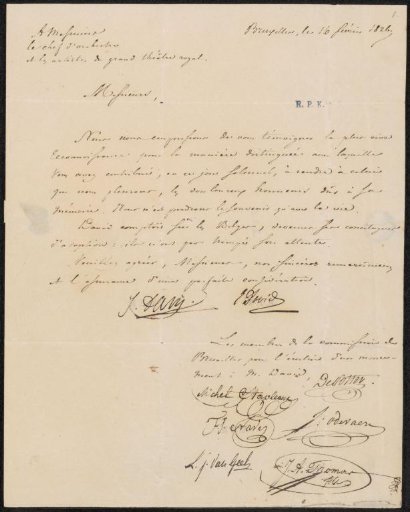 A Messieurs
le chef d'orchestre
et les artistes du grand théâtre royal.
Bruxelles, le 16 février 1826
Messieurs,
E.P.K.
Nous nous empressons de vous témoigner la plus vive
reconnaissance pour la manière distinguée avec laquelle
vous avez contribué, en ce jour solennel, à rendre à celui
que nous pleurons, les douloureux honneurs dûs à sa
mémoire. Nous n'en perdrons le souvenir qu'avec la vie.
David comptait sur les Belges, devenus ses concitoyens
d'adoption; ils n'ont pas trompé son attente.
Veuillez agréer, Messieurs, nos sincères remerciemens
et l'assurance d'une parfaite considération.
J. David. E. David
Les membres de la commission de
Bruxelles pour l'érection d'un monu-
ment à M. David,
De Potter.
Michel Stapleaux
F. J. Navez J. Odevaere
L. J. Van Geel J. A. Thomas